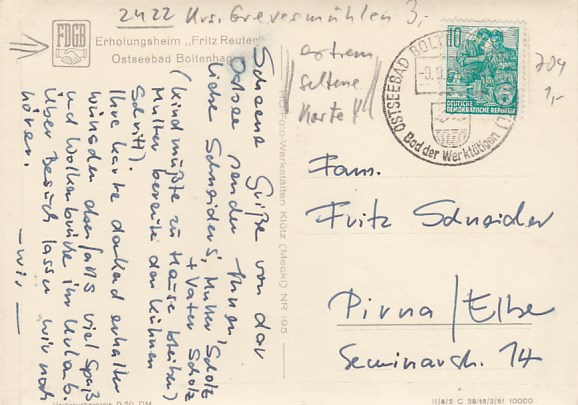 2422 Krs. Grevesmühlen 3,-
FDGB
Erholungsheim „Fritz Reuter"
Ostseebad Boltenhagen
extrem
seltene
Karte!!
704
1,-
10
DEUTSCHE
DEMOKRATISCHE REPUBLIK
OSTSEEBAD BOLT
Bad der Werktätigen
Schöne Grüße von der
Ostsee senden Ihnen,
liebe Schneiders, Mutter Scholz
+ Vater Scholz
(Kind müßte zu Hause bleiben)
Mutter bereite den kühnen
Schritt.
Ihre Karte dankend erhalten
wünschen ebenfalls viel Spaß
und Wolkenbrüche im Urlaub.
Über Besuch lassen wir noch
hören.
– wir –
Foto-Werkstätten Klütz (Meckl) NR 195
Fam.
Fritz Schneider
Pirna/Elbe
Seminarstr. 14
Verbraucherpreis 0,20 DM
II/8/2 C 39/15/2/61 10000